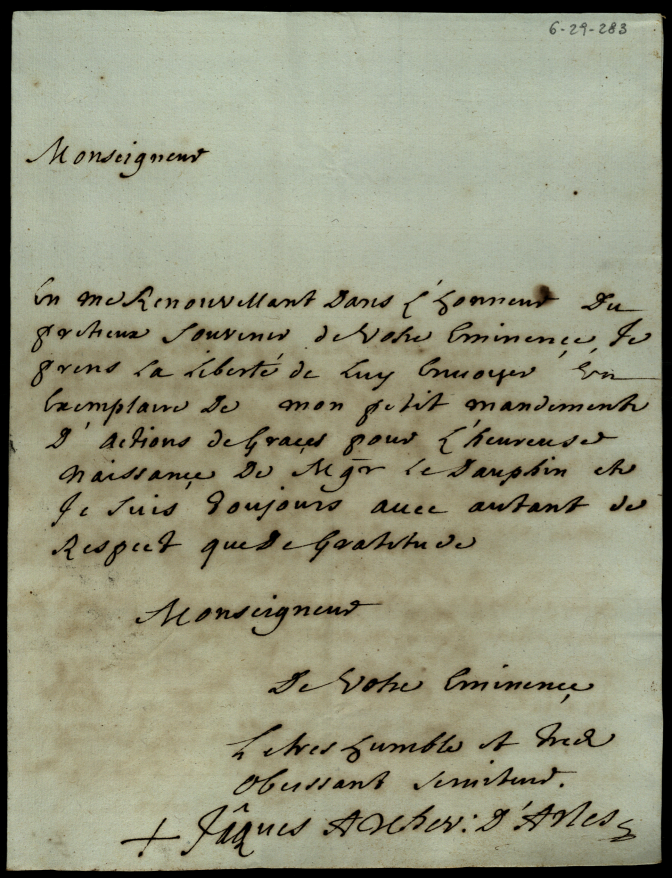 6-29-283
Monseigneur
En me Renouvellant Dans L'honneur Du
pretieux Souvenir de Votre Eminençe, Je
prens La Liberté de Luy Envoyer Un
Exemplaire De mon petit mandement
D'actions de Graçes pour L'heureuse
Naissançe De Mgr Le Dauphin et
Je suis Toujours avec autant de
Respect que De Gratitude
Monseigneur
De Votre Eminençe
Le tres humble et tres
Obeissant serviteur.
+ Jâques Archev: D'Arles